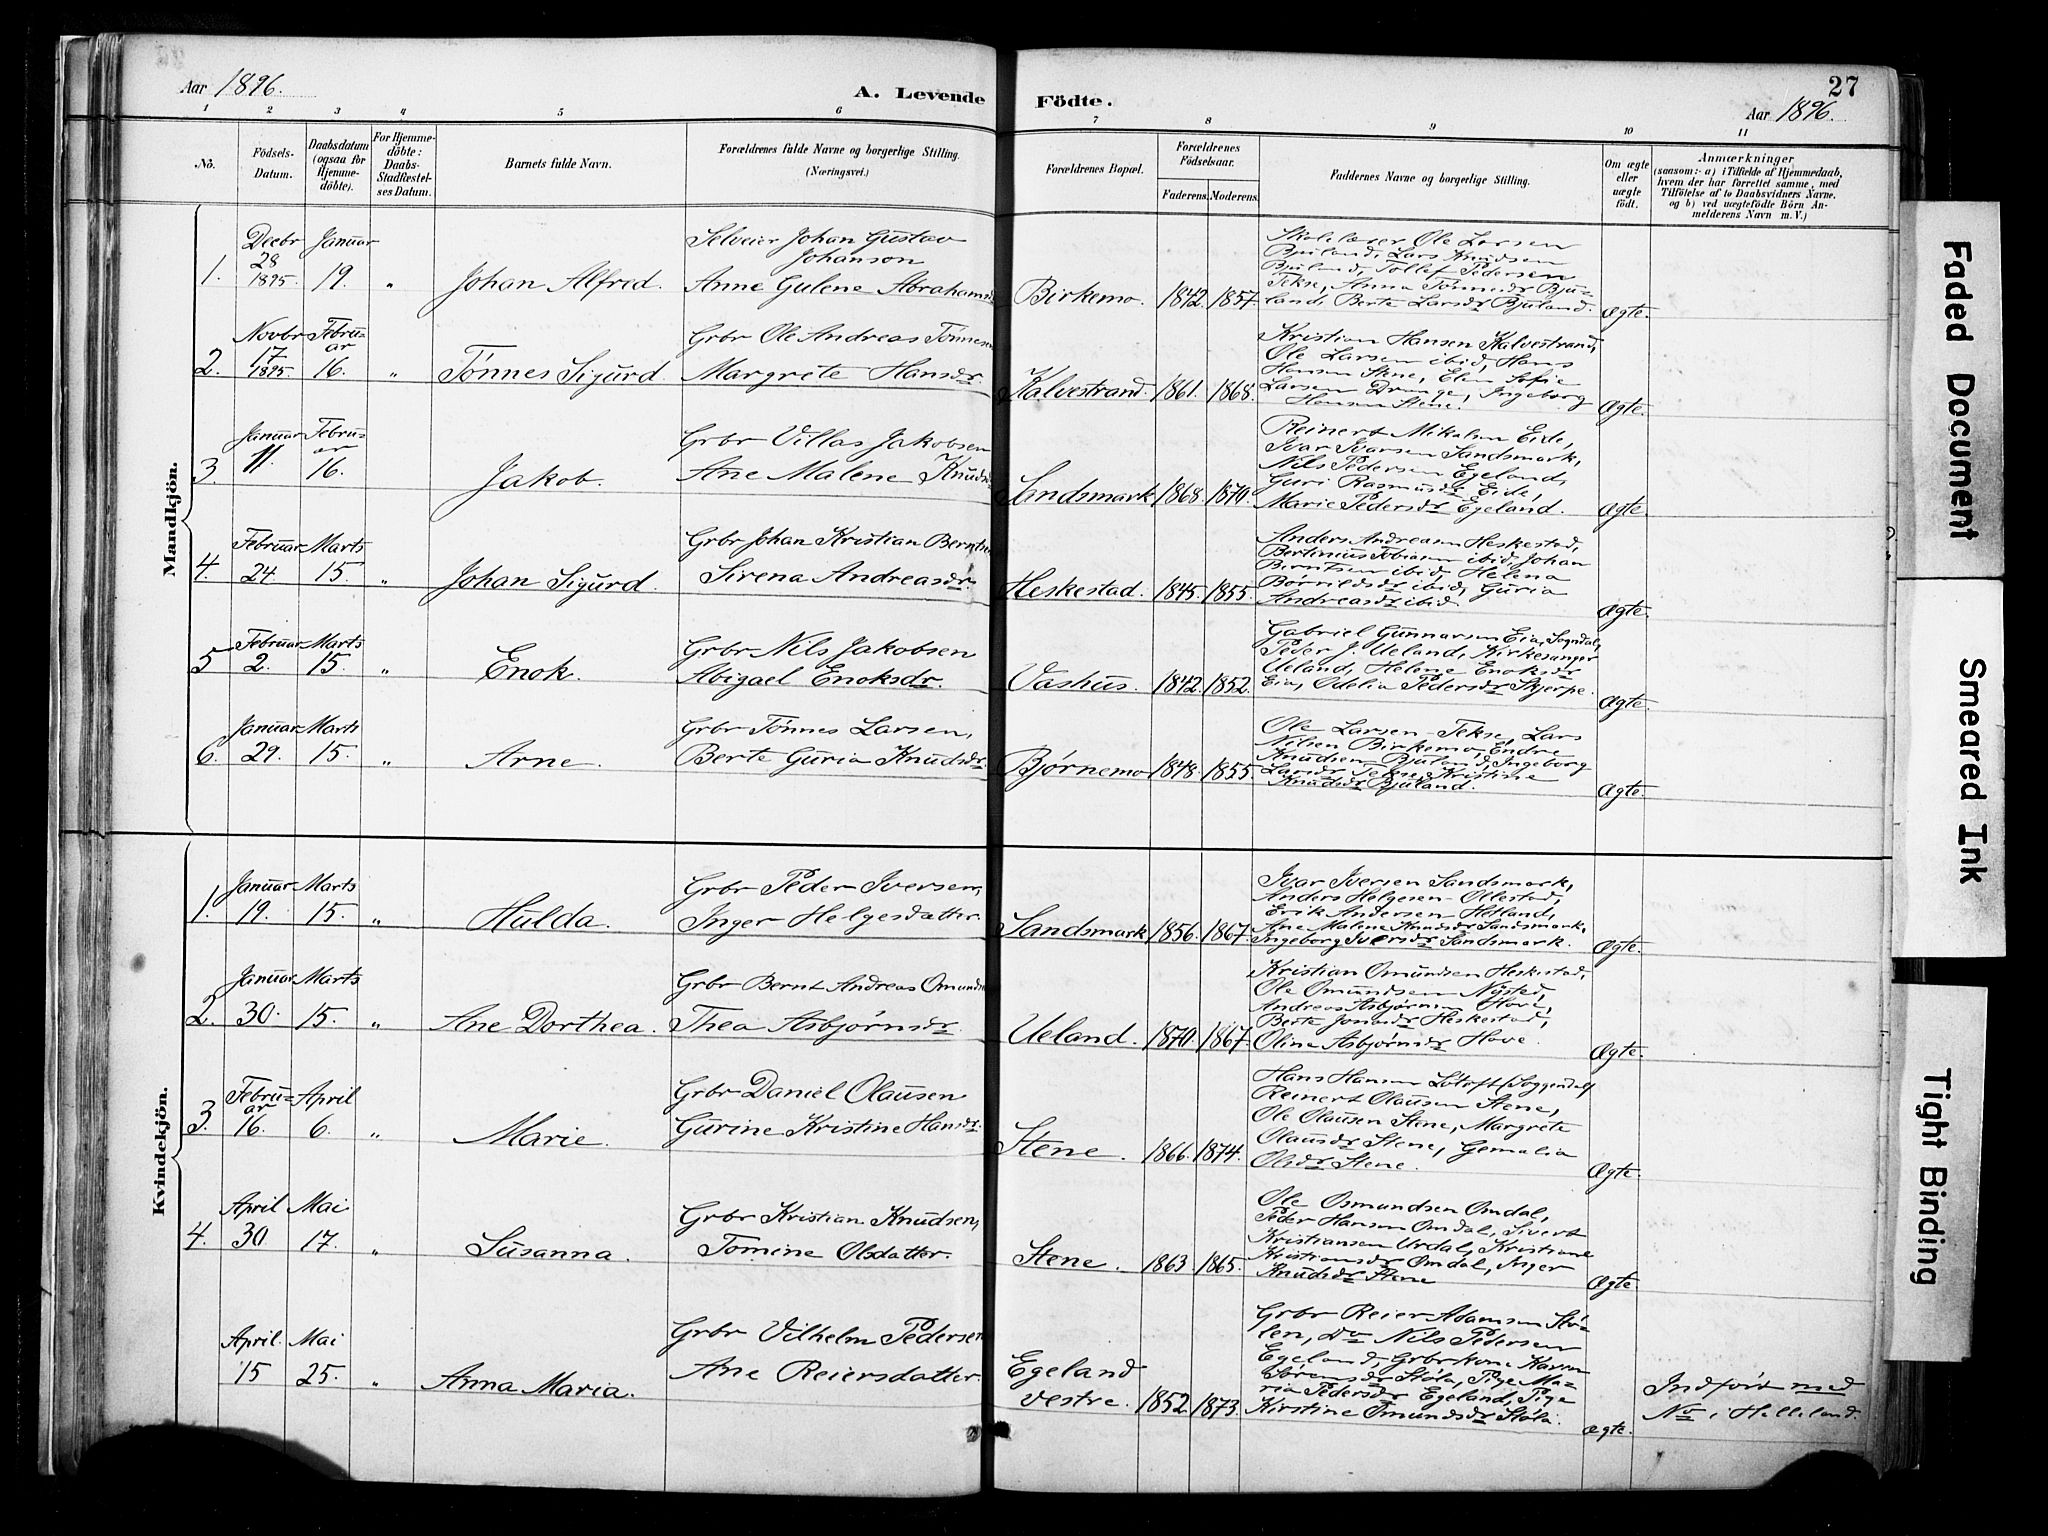 Aar 1896.
A. Levende Födte.
27
Aar 1896.
1 2 3 4 5 6 7 8 9 10 11
Nò.
Födsels-Datum.
Daabsdatum (ogsaa for Hjemmedöbte).
For Hjemmedöbte: Daabs-Stadfæstelses Datum.
Barnets fulde Navn.
Forældrenes fulde Navne og borgerlige Stilling. (Næringsvei.)
Forældrenes Bopæl.
Forældrenes Födselsaar.
Faderens. Moderens.
Faddernes Navne og borgerlige Stilling.
Om ægte eller uægte födt.
Anmærkninger
(saasom:- a) i Tilfælde af Hjemmedaab,
hvem der har forrettet samme, med
Tilföielse af to Daabsvidners Navne.
og b) ved uægtefödte Börn An-
melderens Navn m. V.)
Mandkjön.
1.
Decbr 28 1895
Januar 19.
"
Johan Alfred.
Selveier Johan Gustav
Johanson
Anne Gulene Abrahamsd
Birkemo.
1842. 1857.
Skolelærer Ole Larsen
Bjuland, Lars Knudsen
Bjuland, Tollef Pedersen
Tekse, Anna Tønnesdr Bju-
land, Berte Larsdr Bjuland.
Ægte.
2.
Novbr 17 1895.
Febru-ar 16.
"
Tønnes Sigurd.
Grbr Ole Andreas Tønnesen
Margrete Hansdr.
Kalvestrand.
1861. 1868.
Kristian Hansen Kalvestrand,
Ole Larsen ibid, Hans
Hansen Stene, Elen Sofie
Larsen Drange, Ingeborg
Hansen Stene.
Ægte.
3.
Januar 11.
Febru-ar 16.
Jakob.
Grbr Villas Jakobsen
Ane Malene Knudsd
Sandsmark
1868. 1870.
Reinert Mikalsen Eide,
Ivar Ivarsen Sandsmark,
Nils Pedersen Egeland,
Guri Rasmusdr Eide,
Marie Pedersdr Egeland.
Ægte.
4.
Februar 24
Marts 15.
"
Johan Sigurd.
Grbr Johan Kristian Berntsen
Sirena Andreasdr.
Heskestad.
1845. 1855.
Anders Andreasen Heskestad,
Bertinius Tobiasen ibid, Johan
Berntsen ibid, Helena
Børrildsdr ibid, Guria
Andreasdr ibid.
Ægte.
5
Februar 2.
Marts 15.
"
Enok.
Grbr Nils Jakobsen
Abigael Enoksdr.
Vashus.
1842. 1852.
Gabriel Gunnarsen Eia, Sogndal,
Peder J. Ueland, Kirkesanger
Ueland, Helene Enoksdr
Eia, Odelia Pedersdr Skjerpe.
Ægte.
6.
Januar 29.
Marts 15.
"
Arne.
Grbr Tønnes Larsen,
Berte Guria Knudsdr.
Bjørnemo
1848. 1855.
Ole Larsen Tekse, Lars
Nilsen Birkemo, Endre
Knudsen Bjuland, Ingeborg
Larsdr Tekse, Kristine
Knudsdr Bjuland.
Ægte.
Kvindekjön.
1.
Januar 19.
Marts 15.
"
Hulda.
Grbr Peder Iversen,
Inger Helgesdatter.
Sandsmark
1856. 1867.
Ivar Iversen Sandsmark,
Anders Helgesen Ollestad,
Erik Andersen Hetland,
Ane Malene Knudsdr Sandsmark,
Ingeborg Iversdr Sandsmark.
Ægte.
2.
Januar 30.
Marts 15.
"
Ane Dorthea.
Grbr Bernt Andreas Omunds
Thea Asbjørnsdr.
Ueland.
1870. 1867.
Kristian Omundsen Heskestad,
Ole Omundsen Nysted,
Andreas Asbjørnsen Hove,
Berte Jonasdr Heskestad,
Oline Asbjørnsdr Hove.
Ægte.
3.
Febru-ar 16.
April 6.
"
Marie.
Grbr Daniel Olausen
Gurine Kristine Hansdr.
Stene.
1866. 1874.
Hans Hansen Løtoft (Soggendal)
Reinert Olausen Stene,
Ole Olausen Stene, Margrete
Olausdr Stene, Gemalia
Olsdr Stene.
Ægte.
4.
April 30
Mai 17.
"
Susanna.
Grbr Kristian Knudsen,
Tomine Olsdatter.
Stene.
1863. 1865.
Ole Osmundsen Omdal,
Peder Hansen Omdal, Sivert
Kristiansen Urdal, Kristiane
Kristiansdr Omdal, Inger
Knudsdr Stene
Ægte.
April. 15
Mai 25.
"
Anna Maria.
Grbr Vilhelm Pedersen
Ane Reiersdatter.
Egeland vestre.
1852. 1873.
Grbr Reier Adamsen Stø-
len, Do Nils Pedersen
Egeland, Grbrkone Karen
Sørensdr Støla, Pige Ma-
ria Pedersdr Egeland, Pige
Kirstine Omundsdr Støla.
ægte.
Indført med
No i Helleland.
Faded Document
Smeared Ink
Tight Binding